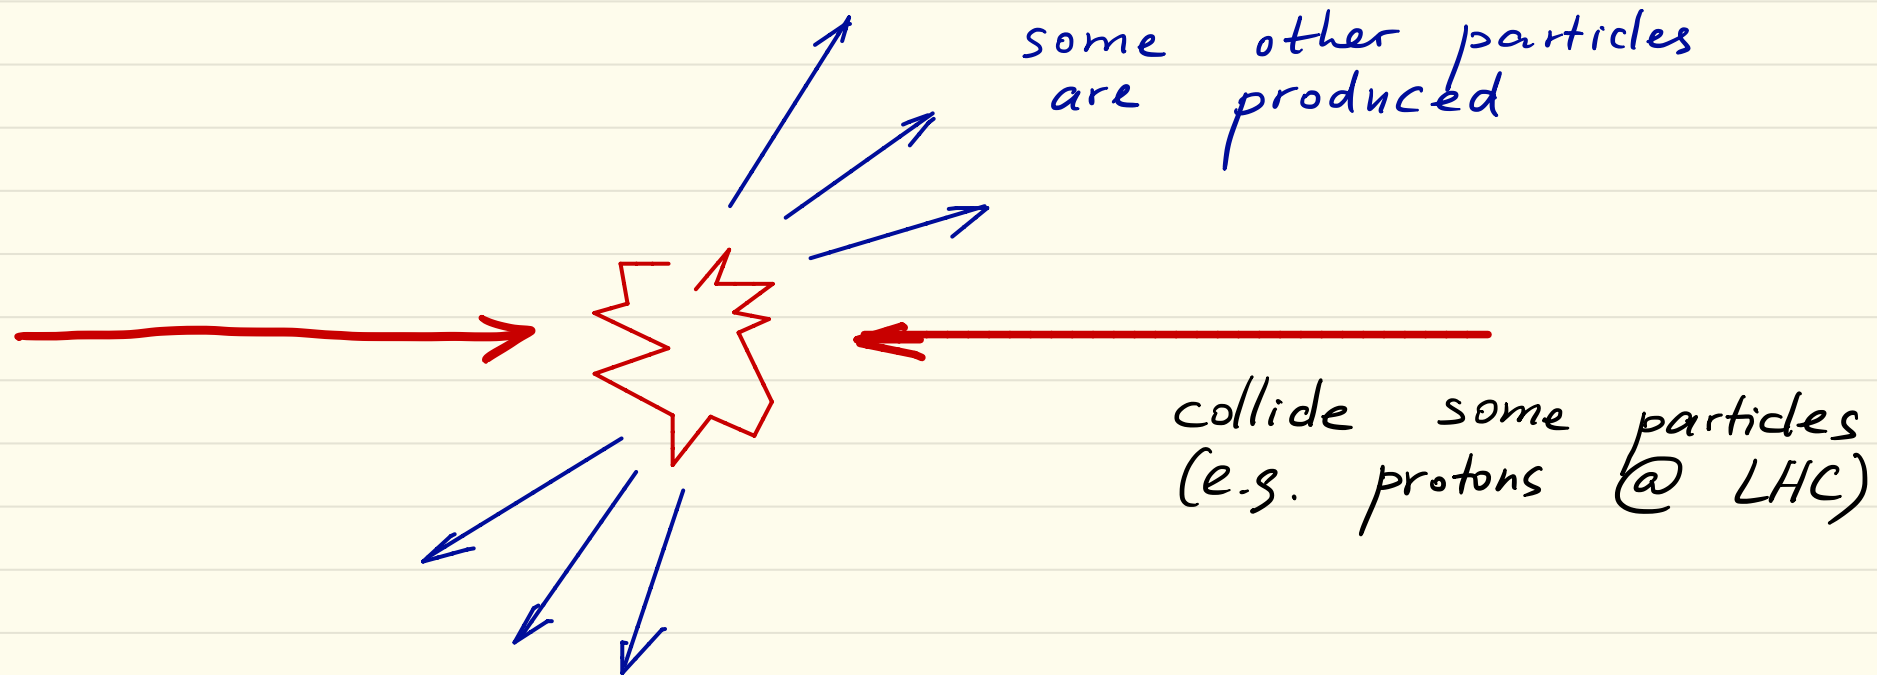 some other particles
are produced
collide some particles
(e.g. protons @ LHC)